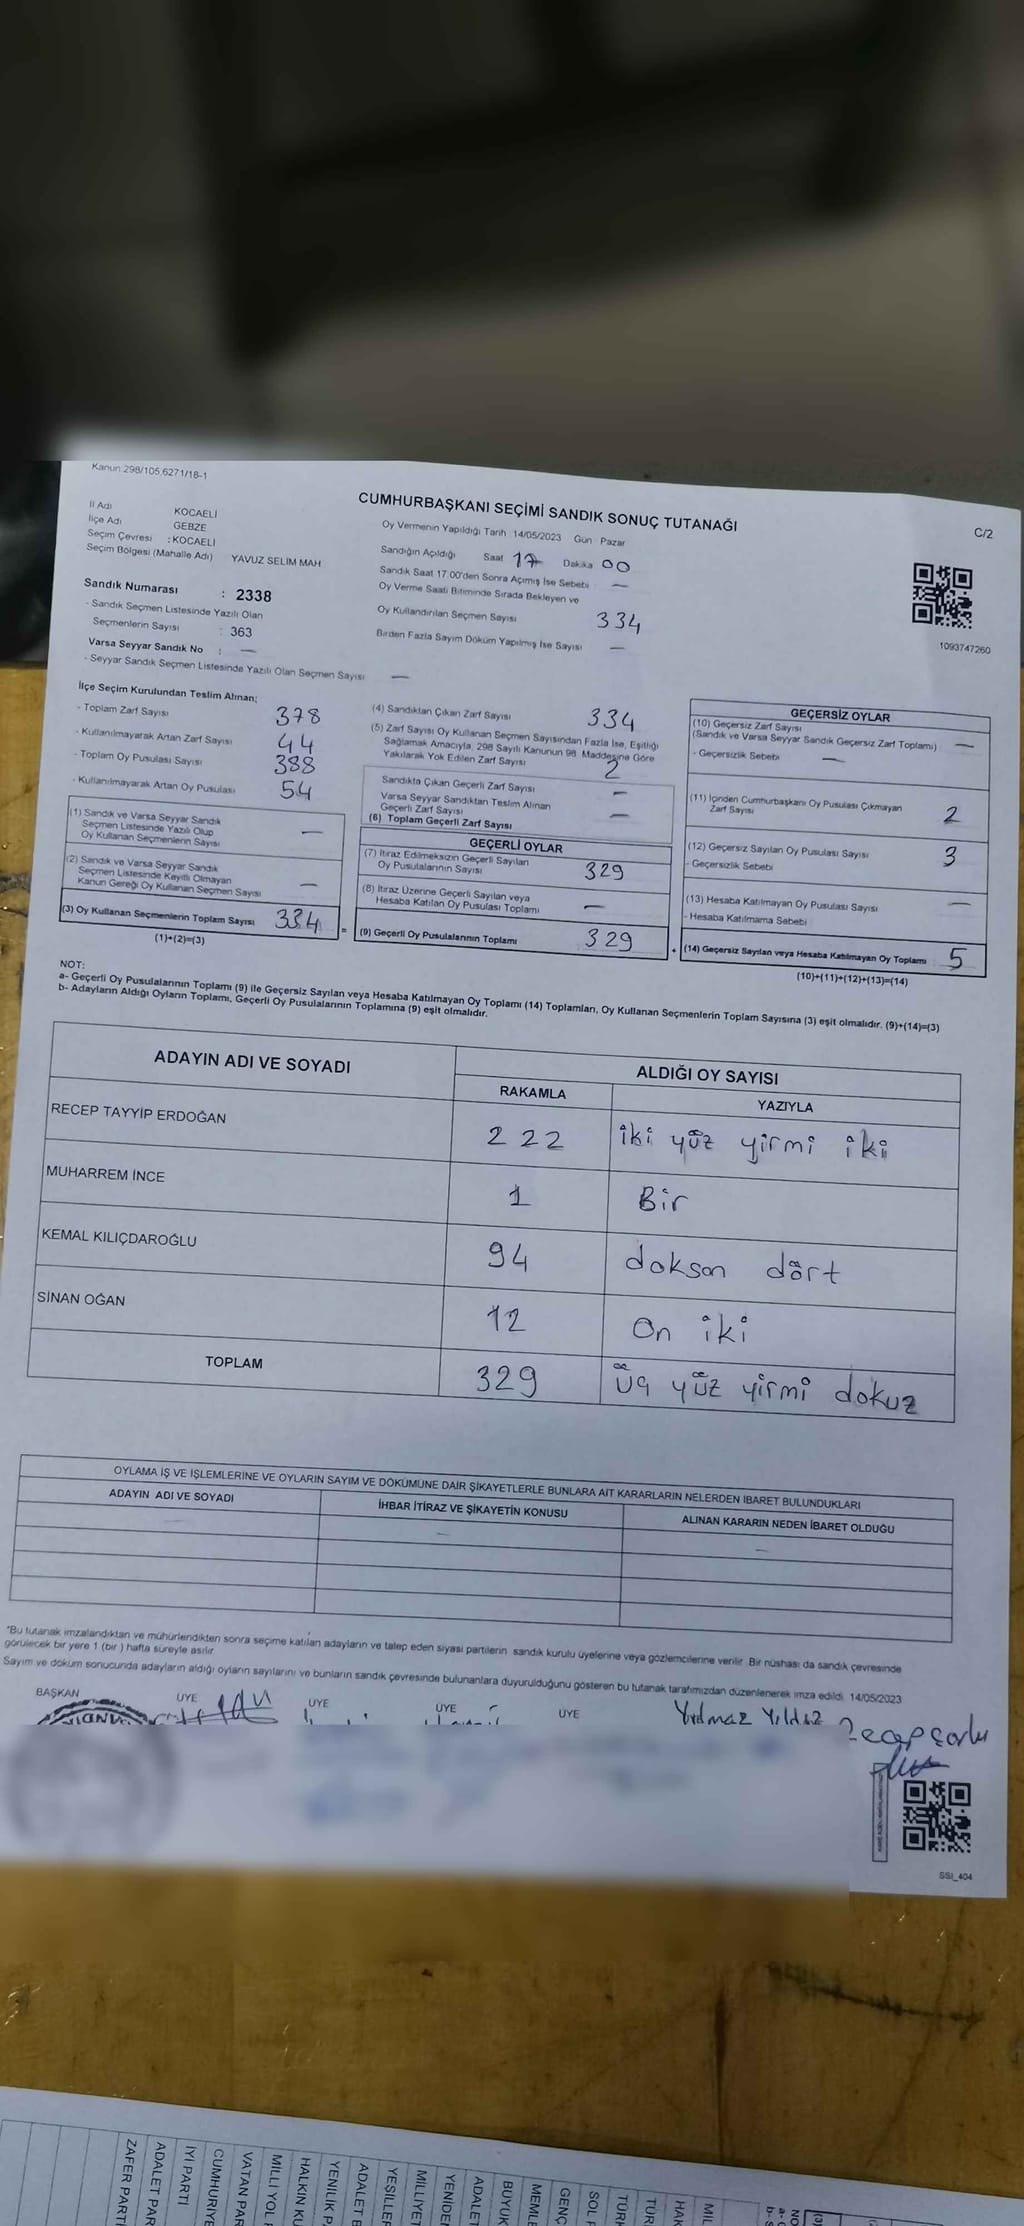 Kanun 298/105,6271/18-1
CUMHURBAŞKANI SEÇİMİ SANDIK SONUÇ TUTANAĞI
C/2
İl Adı KOCAELİ
İlçe Adı GEBZE
Seçim Çevresi : KOCAELİ
Seçim Bölgesi (Mahalle Adı) YAVUZ SELİM MAH
Sandık Numarası : 2338
- Sandık Seçmen Listesinde Yazılı Olan
Seçmenlerin Sayısı : 363
Varsa Seyyar Sandık No : —
- Seyyar Sandık Seçmen Listesinde Yazılı Olan Seçmen Sayısı —
Oy Vermenin Yapıldığı Tarih 14/05/2023 Gün Pazar
Sandığın Açıldığı Saat 17 Dakika 00
Sandık Saat 17:00'den Sonra Açımış İse Sebebi —
Oy Verme Saati Bitiminde Sırada Bekleyen ve
Oy Kullandırılan Seçmen Sayısı 334
Birden Fazla Sayım Döküm Yapılmış İse Sayısı —
1093747260
İlçe Seçim Kurulundan Teslim Alınan;
- Toplam Zarf Sayısı 378
- Kullanılmayarak Artan Zarf Sayısı 44
- Toplam Oy Pusulası Sayısı 388
- Kullanılmayarak Artan Oy Pusulası 54
(1) Sandık ve Varsa Seyyar Sandık
Seçmen Listesinde Yazılı Olup
Oy Kullanan Seçmenlerin Sayısı —
(2) Sandık ve Varsa Seyyar Sandık
Seçmen Listesinde Kayıtlı Olmayan
Kanun Gereği Oy Kullanan Seçmen Sayısı —
(3) Oy Kullanan Seçmenlerin Toplam Sayısı 334 =
(1)+(2)=(3)
(4) Sandıktan Çıkan Zarf Sayısı 334
(5) Zarf Sayısı Oy Kullanan Seçmen Sayısından Fazla İse, Eşitliği
Sağlamak Amacıyla, 298 Sayılı Kanunun 98. Maddesine Göre
Yakılarak Yok Edilen Zarf Sayısı 2
Sandıkta Çıkan Geçerli Zarf Sayısı —
Varsa Seyyar Sandıktan Teslim Alınan
Geçerli Zarf Sayısı —
(6) Toplam Geçerli Zarf Sayısı
GEÇERLİ OYLAR
(7) İtiraz Edilmeksizin Geçerli Sayılan
Oy Pusulalarının Sayısı 329
(8) İtiraz Üzerine Geçerli Sayılan veya
Hesaba Katılan Oy Pusulası Toplamı —
(9) Geçerli Oy Pusulalarının Toplamı 329
GEÇERSİZ OYLAR
(10) Geçersiz Zarf Sayısı
(Sandık ve Varsa Seyyar Sandık Geçersiz Zarf Toplamı) —
- Geçersizlik Sebebi —
(11) İçinden Cumhurbaşkanı Oy Pusulası Çıkmayan
Zarf Sayısı 2
(12) Geçersiz Sayılan Oy Pusulası Sayısı 3
- Geçersizlik Sebebi
(13) Hesaba Katılmayan Oy Pusulası Sayısı —
- Hesaba Katılmama Sebebi
+ (14) Geçersiz Sayılan veya Hesaba Katılmayan Oy Toplamı : 5
(10)+(11)+(12)+(13)=(14)
NOT:
a- Geçerli Oy Pusulalarının Toplamı (9) ile Geçersiz Sayılan veya Hesaba Katılmayan Oy Toplamı (14) Toplamları, Oy Kullanan Seçmenlerin Toplam Sayısına (3) eşit olmalıdır. (9)+(14)=(3)
b- Adayların Aldığı Oyların Toplamı, Geçerli Oy Pusulalarının Toplamına (9) eşit olmalıdır.
ADAYIN ADI VE SOYADI ALDIĞI OY SAYISI
RAKAMLA YAZIYLA
RECEP TAYYİP ERDOĞAN 222 iki yüz yirmi iki
MUHARREM İNCE 1 Bir
KEMAL KILIÇDAROĞLU 94 doksan dört
SİNAN OĞAN 12 On iki
TOPLAM 329 Üç yüz yirmi dokuz
OYLAMA İŞ VE İŞLEMLERİNE VE OYLARIN SAYIM VE DÖKÜMÜNE DAİR ŞİKAYETLERLE BUNLARA AİT KARARLARIN NELERDEN İBARET BULUNDUKLARI
ADAYIN ADI VE SOYADI İHBAR İTİRAZ VE ŞİKAYETİN KONUSU ALINAN KARARIN NEDEN İBARET OLDUĞU
— — —
"Bu tutanak imzalandıktan ve mühürlendikten sonra seçime katılan adayların ve talep eden siyasi partilerin sandık kurulu üyelerine veya gözlemcilerine verilir. Bir nüshası da sandık çevresinde
görülecek bir yere 1 (bir ) hafta süreyle asılır.
Sayım ve döküm sonucunda adayların aldığı oyların sayılarını ve bunların sandık çevresinde bulunanlara duyurulduğunu gösteren bu tutanak tarafımızdan düzenlenerek imza edildi. 14/05/2023
BAŞKAN ÜYE ÜYE ÜYE ÜYE Yılmaz Yıldız
SSI_404
ZAFER PARTİ
ADALET PAR
İYİ PARTİ
CUMHURİYE
VATAN PAR
MİLLİ YOL
HALKIN KU
YENİLİK P
ADALET B
YEŞİLLER
MİLLİYET
YENİDE
ADALET
BÜYÜK
MEMLE
GENÇ
SOL P
TÜRK
TÜR
HAK
MİL